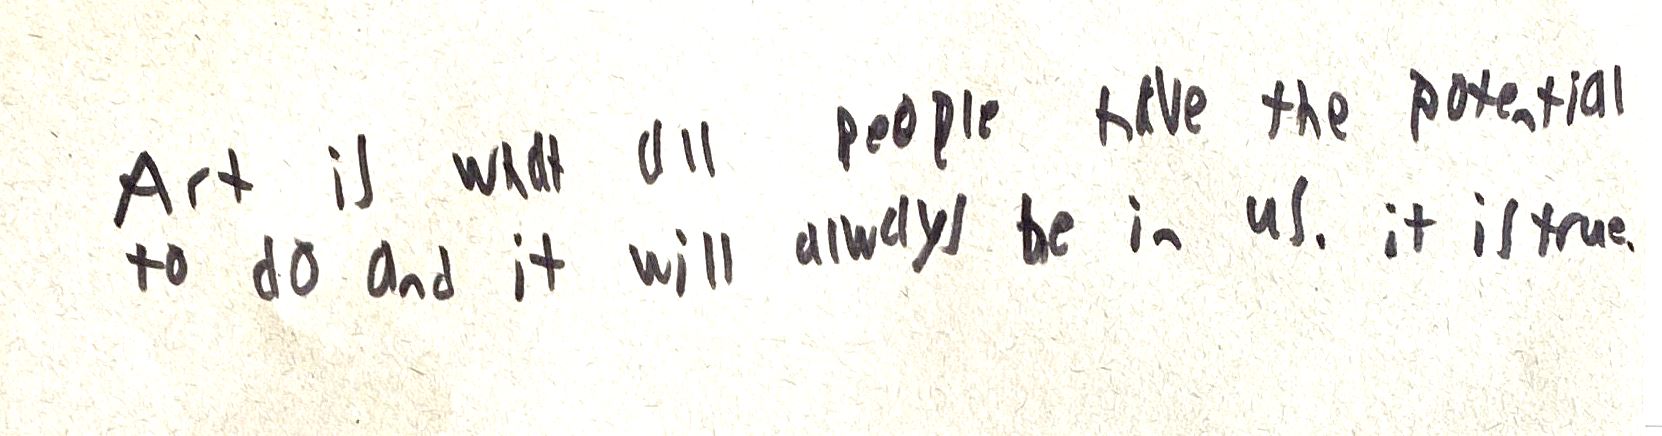 Art is what all people have the potential
to do and it will always be in us. it is true.